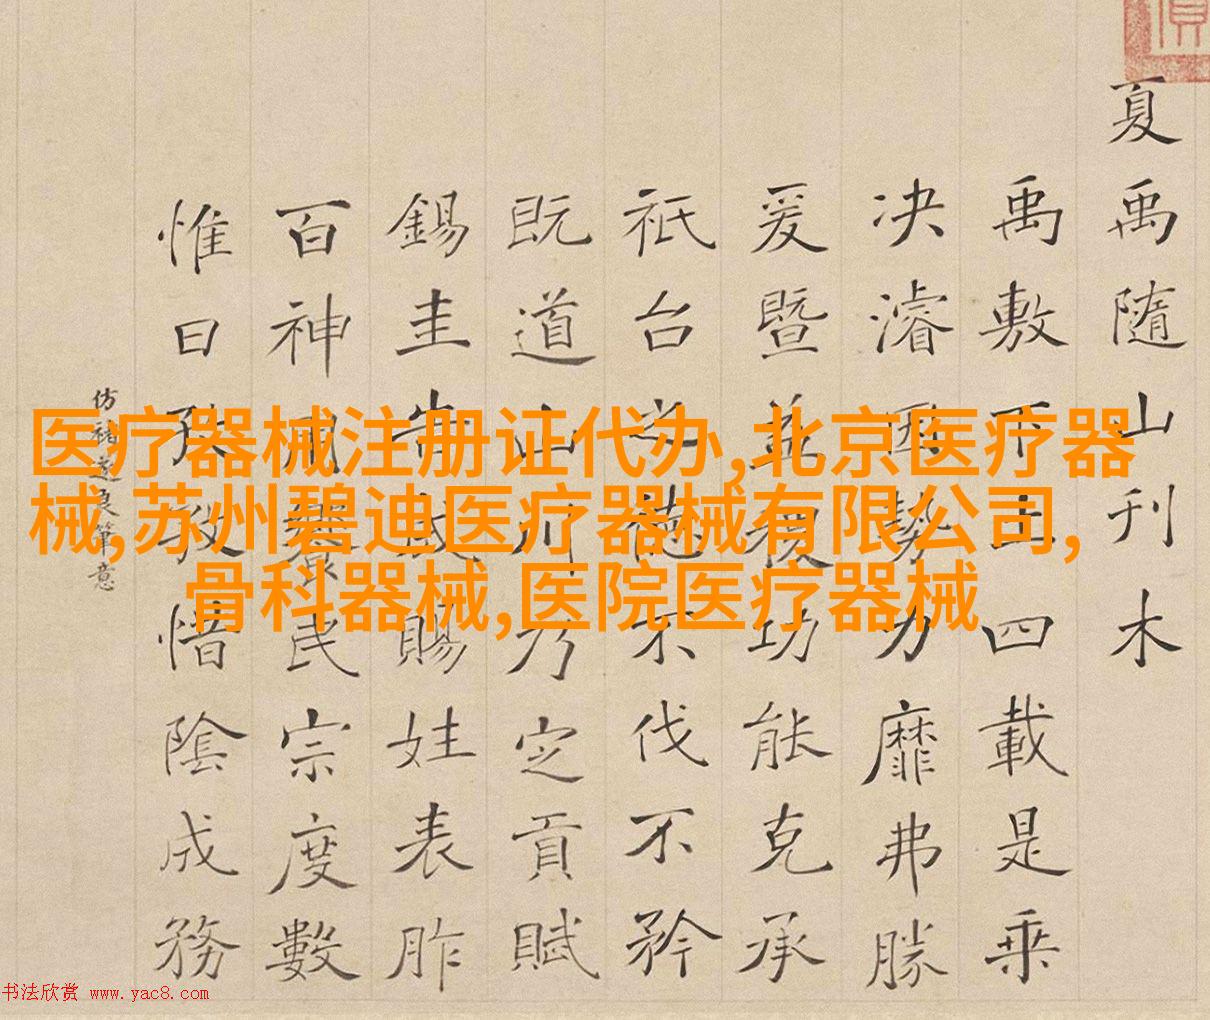 夏禹隨山刊木
禹敷下土四載是乘
决濬因勢力靡弗勝
爰暨稷功能克承
祗台德不伐不矜
既道山川乃定貢賦
錫圭告成賜姓表胙
百神民宗度數
惟日孜孜惜陰成務
仿褚遂良筆意
医疗器械注册证代办,北京医疗器
械,苏州碧迪医疗器械有限公司,
骨科器械,医院医疗器械
书法欣赏 www.yac8.com